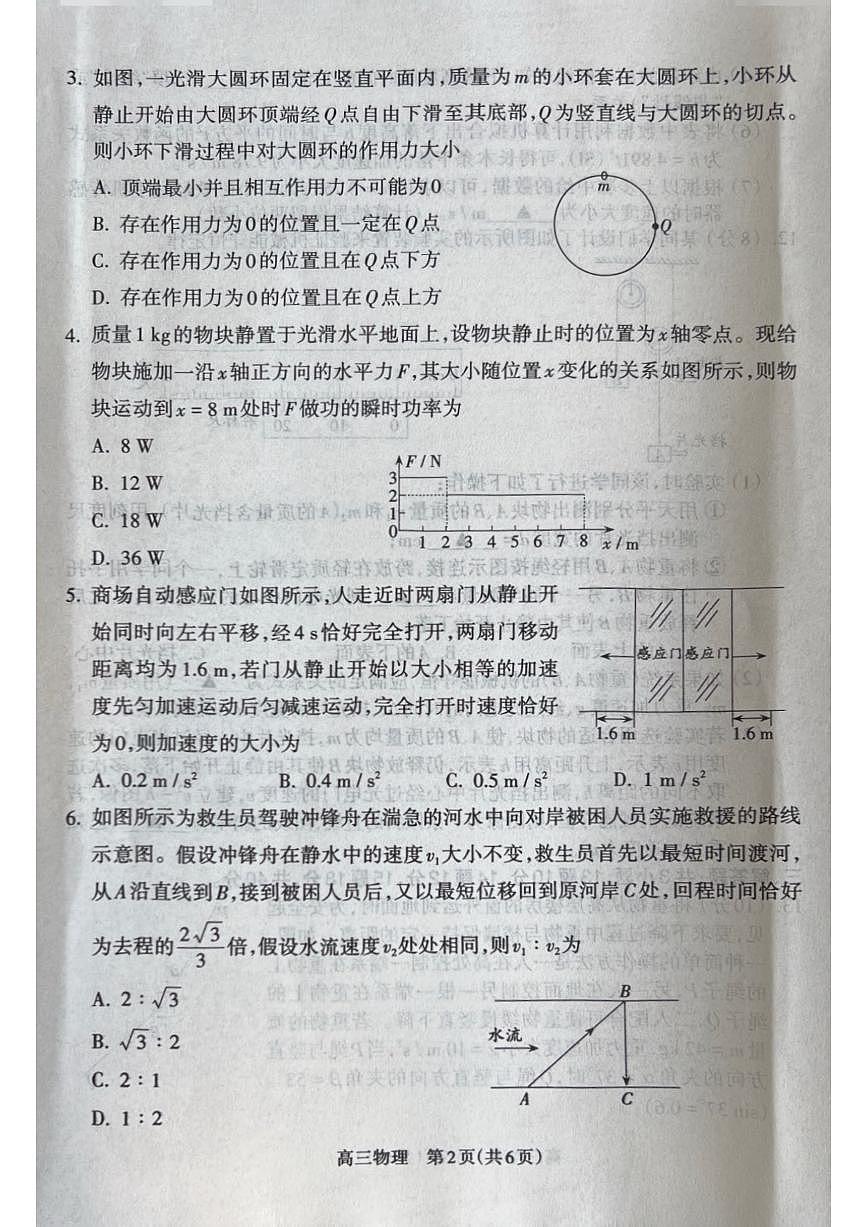 3. 如图,一光滑大圆环固定在竖直平面内,质量为m的小环套在大圆环上,小环从
静止开始由大圆环顶端经Q点自由下滑至其底部,Q为竖直线与大圆环的切点。
则小环下滑过程中对大圆环的作用力大小
A. 顶端最小并且相互作用力不可能为0
B. 存在作用力为0的位置且一定在Q点
C. 存在作用力为0的位置且在Q点下方
D. 存在作用力为0的位置且在Q点上方
m
Q
4. 质量1 kg的物块静置于光滑水平地面上,设物块静止时的位置为x轴零点。现给
物块施加一沿x轴正方向的水平力F,其大小随位置x变化的关系如图所示,则物
块运动到x = 8 m处时F做功的瞬时功率为
A. 8 W
B. 12 W
C. 18 W
D. 36 W
F/N
3
2
1
0
1 2 3 4 5 6 7 8 x/m
5. 商场自动感应门如图所示,人走近时两扇门从静止开
始同时向左右平移,经4 s恰好完全打开,两扇门移动
距离均为1.6 m,若门从静止开始以大小相等的加速
度先匀加速运动后匀减速运动,完全打开时速度恰好
为0,则加速度的大小为
感应门 感应门
1.6 m 1.6 m
A. 0.2 m/s² B. 0.4 m/s² C. 0.5 m/s² D. 1 m/s²
6. 如图所示为救生员驾驶冲锋舟在湍急的河水中向对岸被困人员实施救援的路线
示意图。假设冲锋舟在静水中的速度v₁大小不变,救生员首先以最短时间渡河,
从A沿直线到B,接到被困人员后,又以最短位移回到原河岸C处,回程时间恰好
为去程的2√3/3倍,假设水流速度v₂处处相同,则v₁:v₂为
A. 2:√3
B. √3:2
C. 2:1
D. 1:2
B
水流
A
C
高三物理 第2页(共6页)